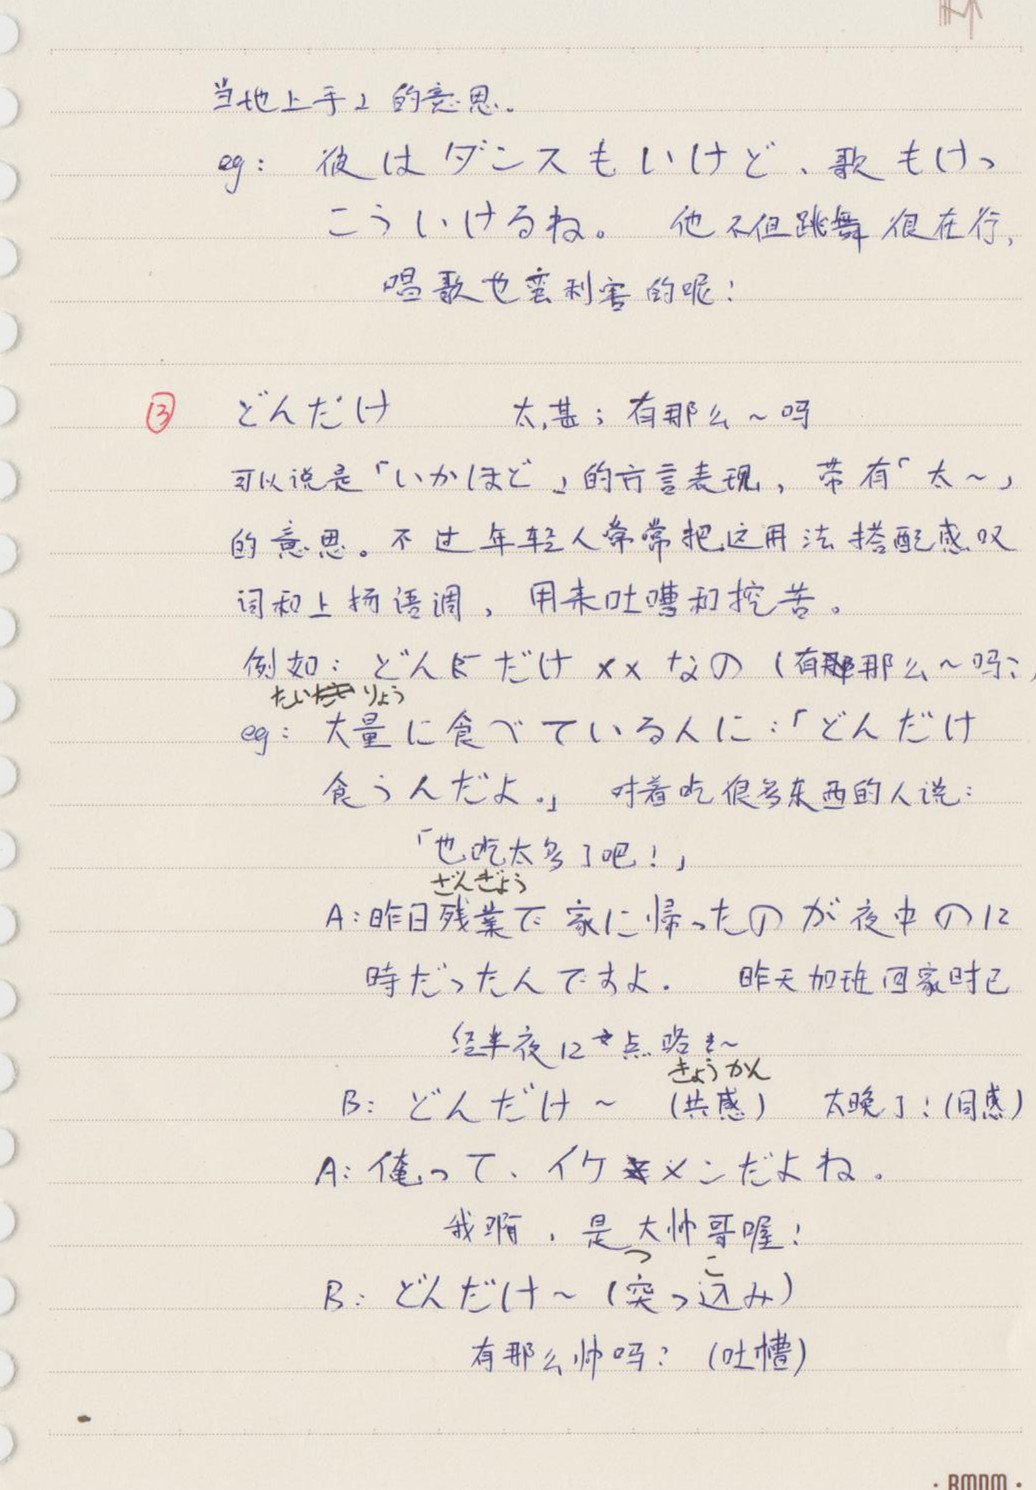 当地上手」的意思。
eg: 彼はダンスもいけど、歌もけっ
こういけるね。 他不但跳舞很在行,
唱歌也蛮利害的呢!
⑬ どんだけ 太,甚;有那么~吗
可以说是「いかほど」的方言表现,带有「太~」
的意思。不过年轻人常常把这用法搭配感叹
词和上扬语调,用来吐嘈和挖苦。
例如: どんだけ××なの (有那么~吗?)
たいりょう
eg: 大量に食べている人に:「どんだけ
食うんだよ。」 对着吃很多东西的人说:
「也吃太多了吧!」
ざんぎょう
A: 昨日残業で家に帰ったのが夜中の12
時だったんですよ. 昨天加班回家时已
经半夜12点咯~
きょうかん
B: どんだけ~ (共感) 太晚了!(同感)
A: 俺って、イケメンだよね。
我啊,是大帅哥喔!
つ こ
B: どんだけ~ (突っ込み)
有那么帅吗? (吐槽)